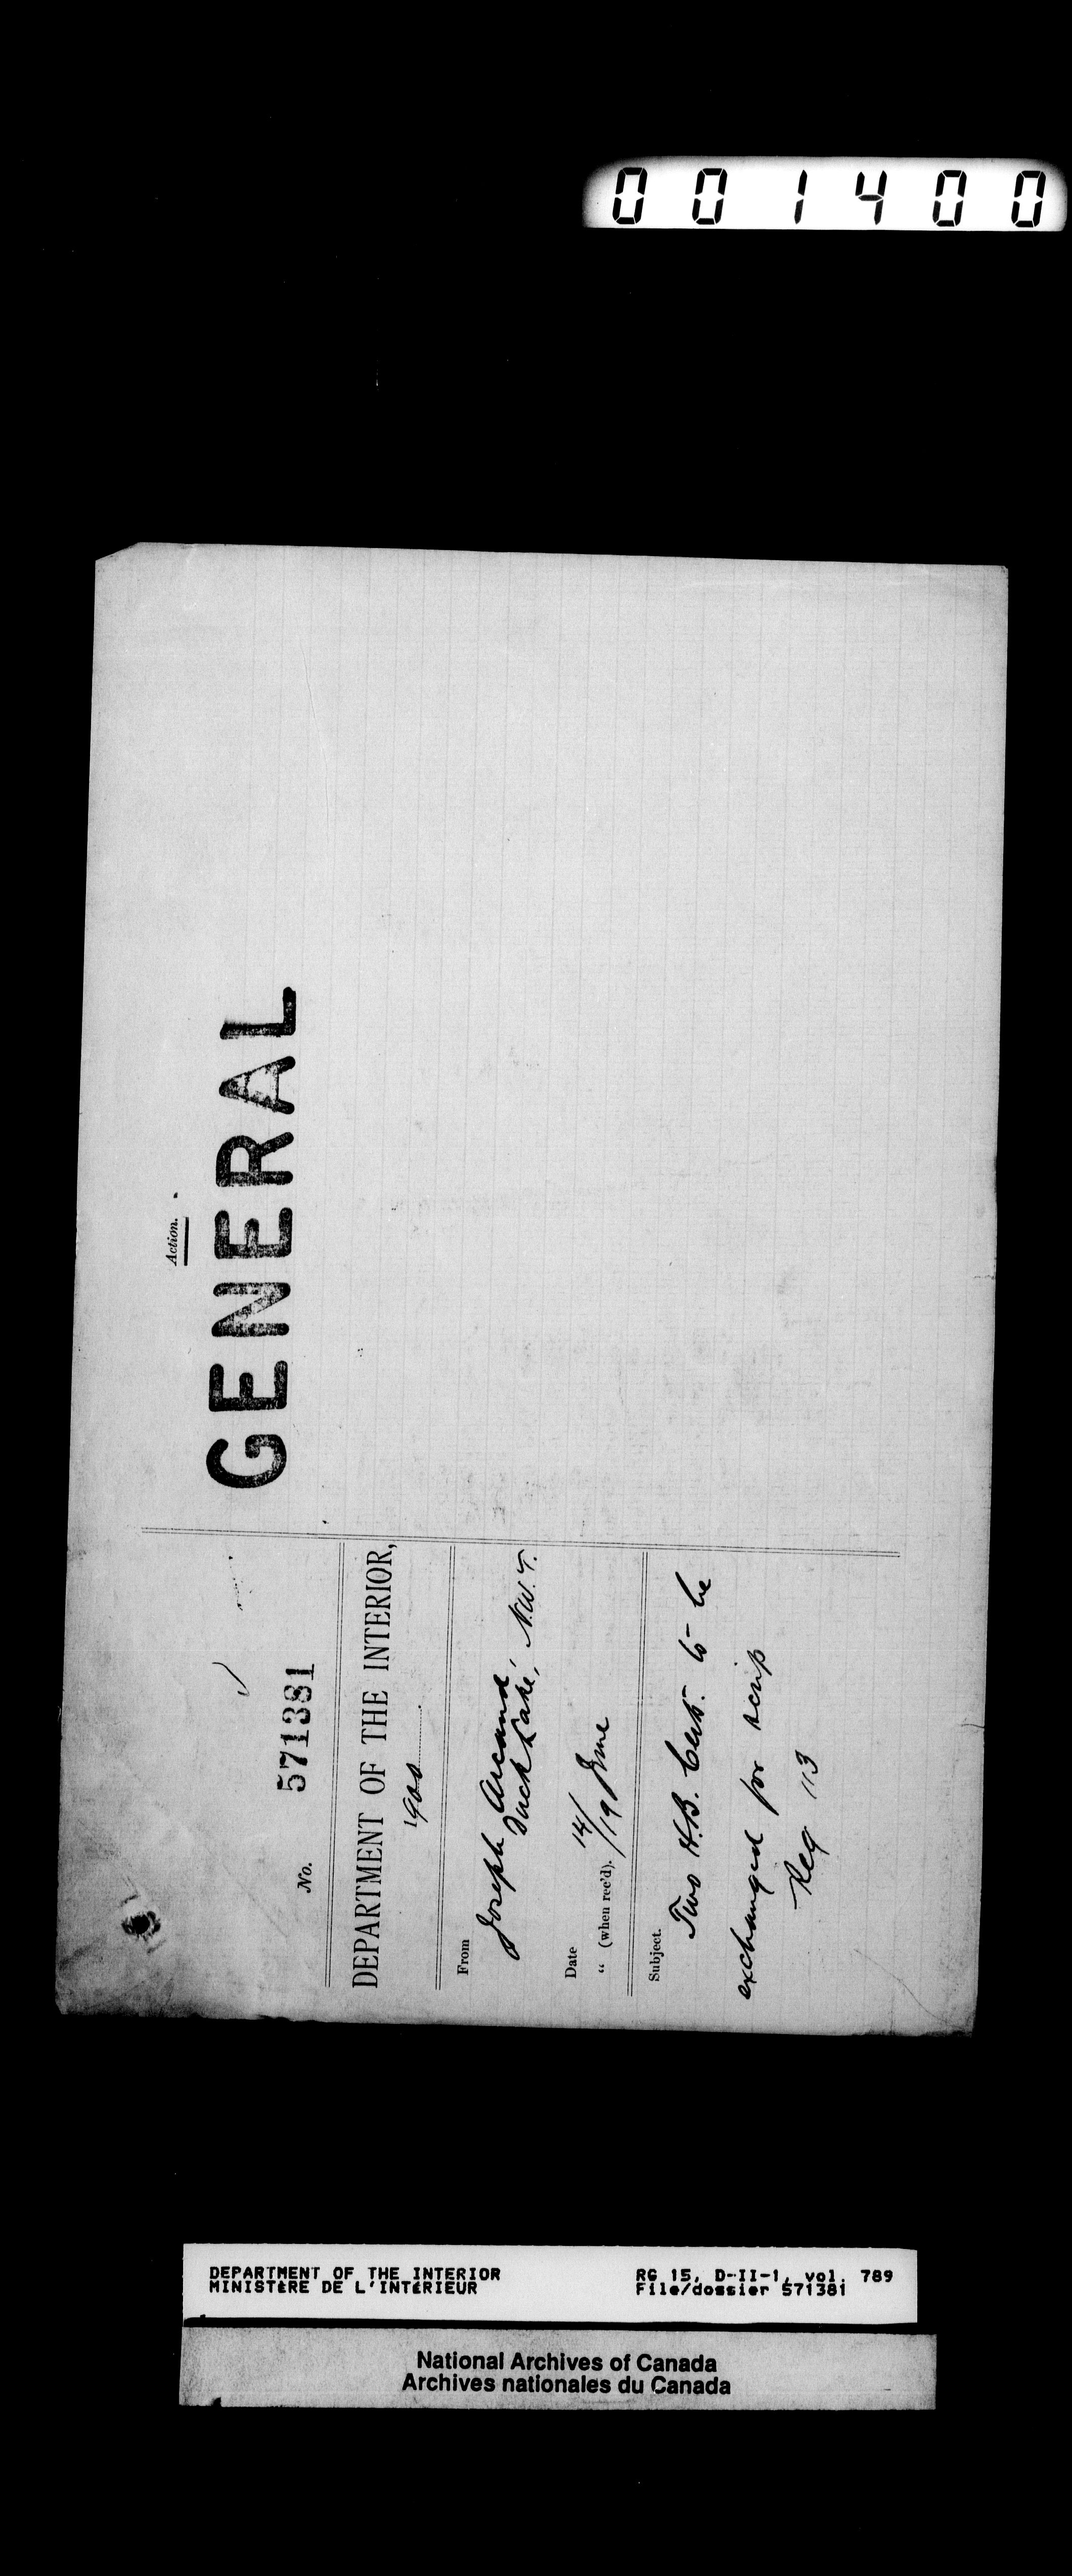 001400
Action.
GENERAL
No. 571381
DEPARTMENT OF THE INTERIOR,
1900
From
Joseph Arcand,
Duck Lake, N.W.T.
Date 14/
" (when rec'd). /19 June
Subject.
Two H.B. Certs. to be
exchanged for scrip
Reg 113
DEPARTMENT OF THE INTERIOR
MINISTÈRE DE L'INTÉRIEUR
RG 15, D-II-1, vol. 789
File/dossier 571381
National Archives of Canada
Archives nationales du Canada